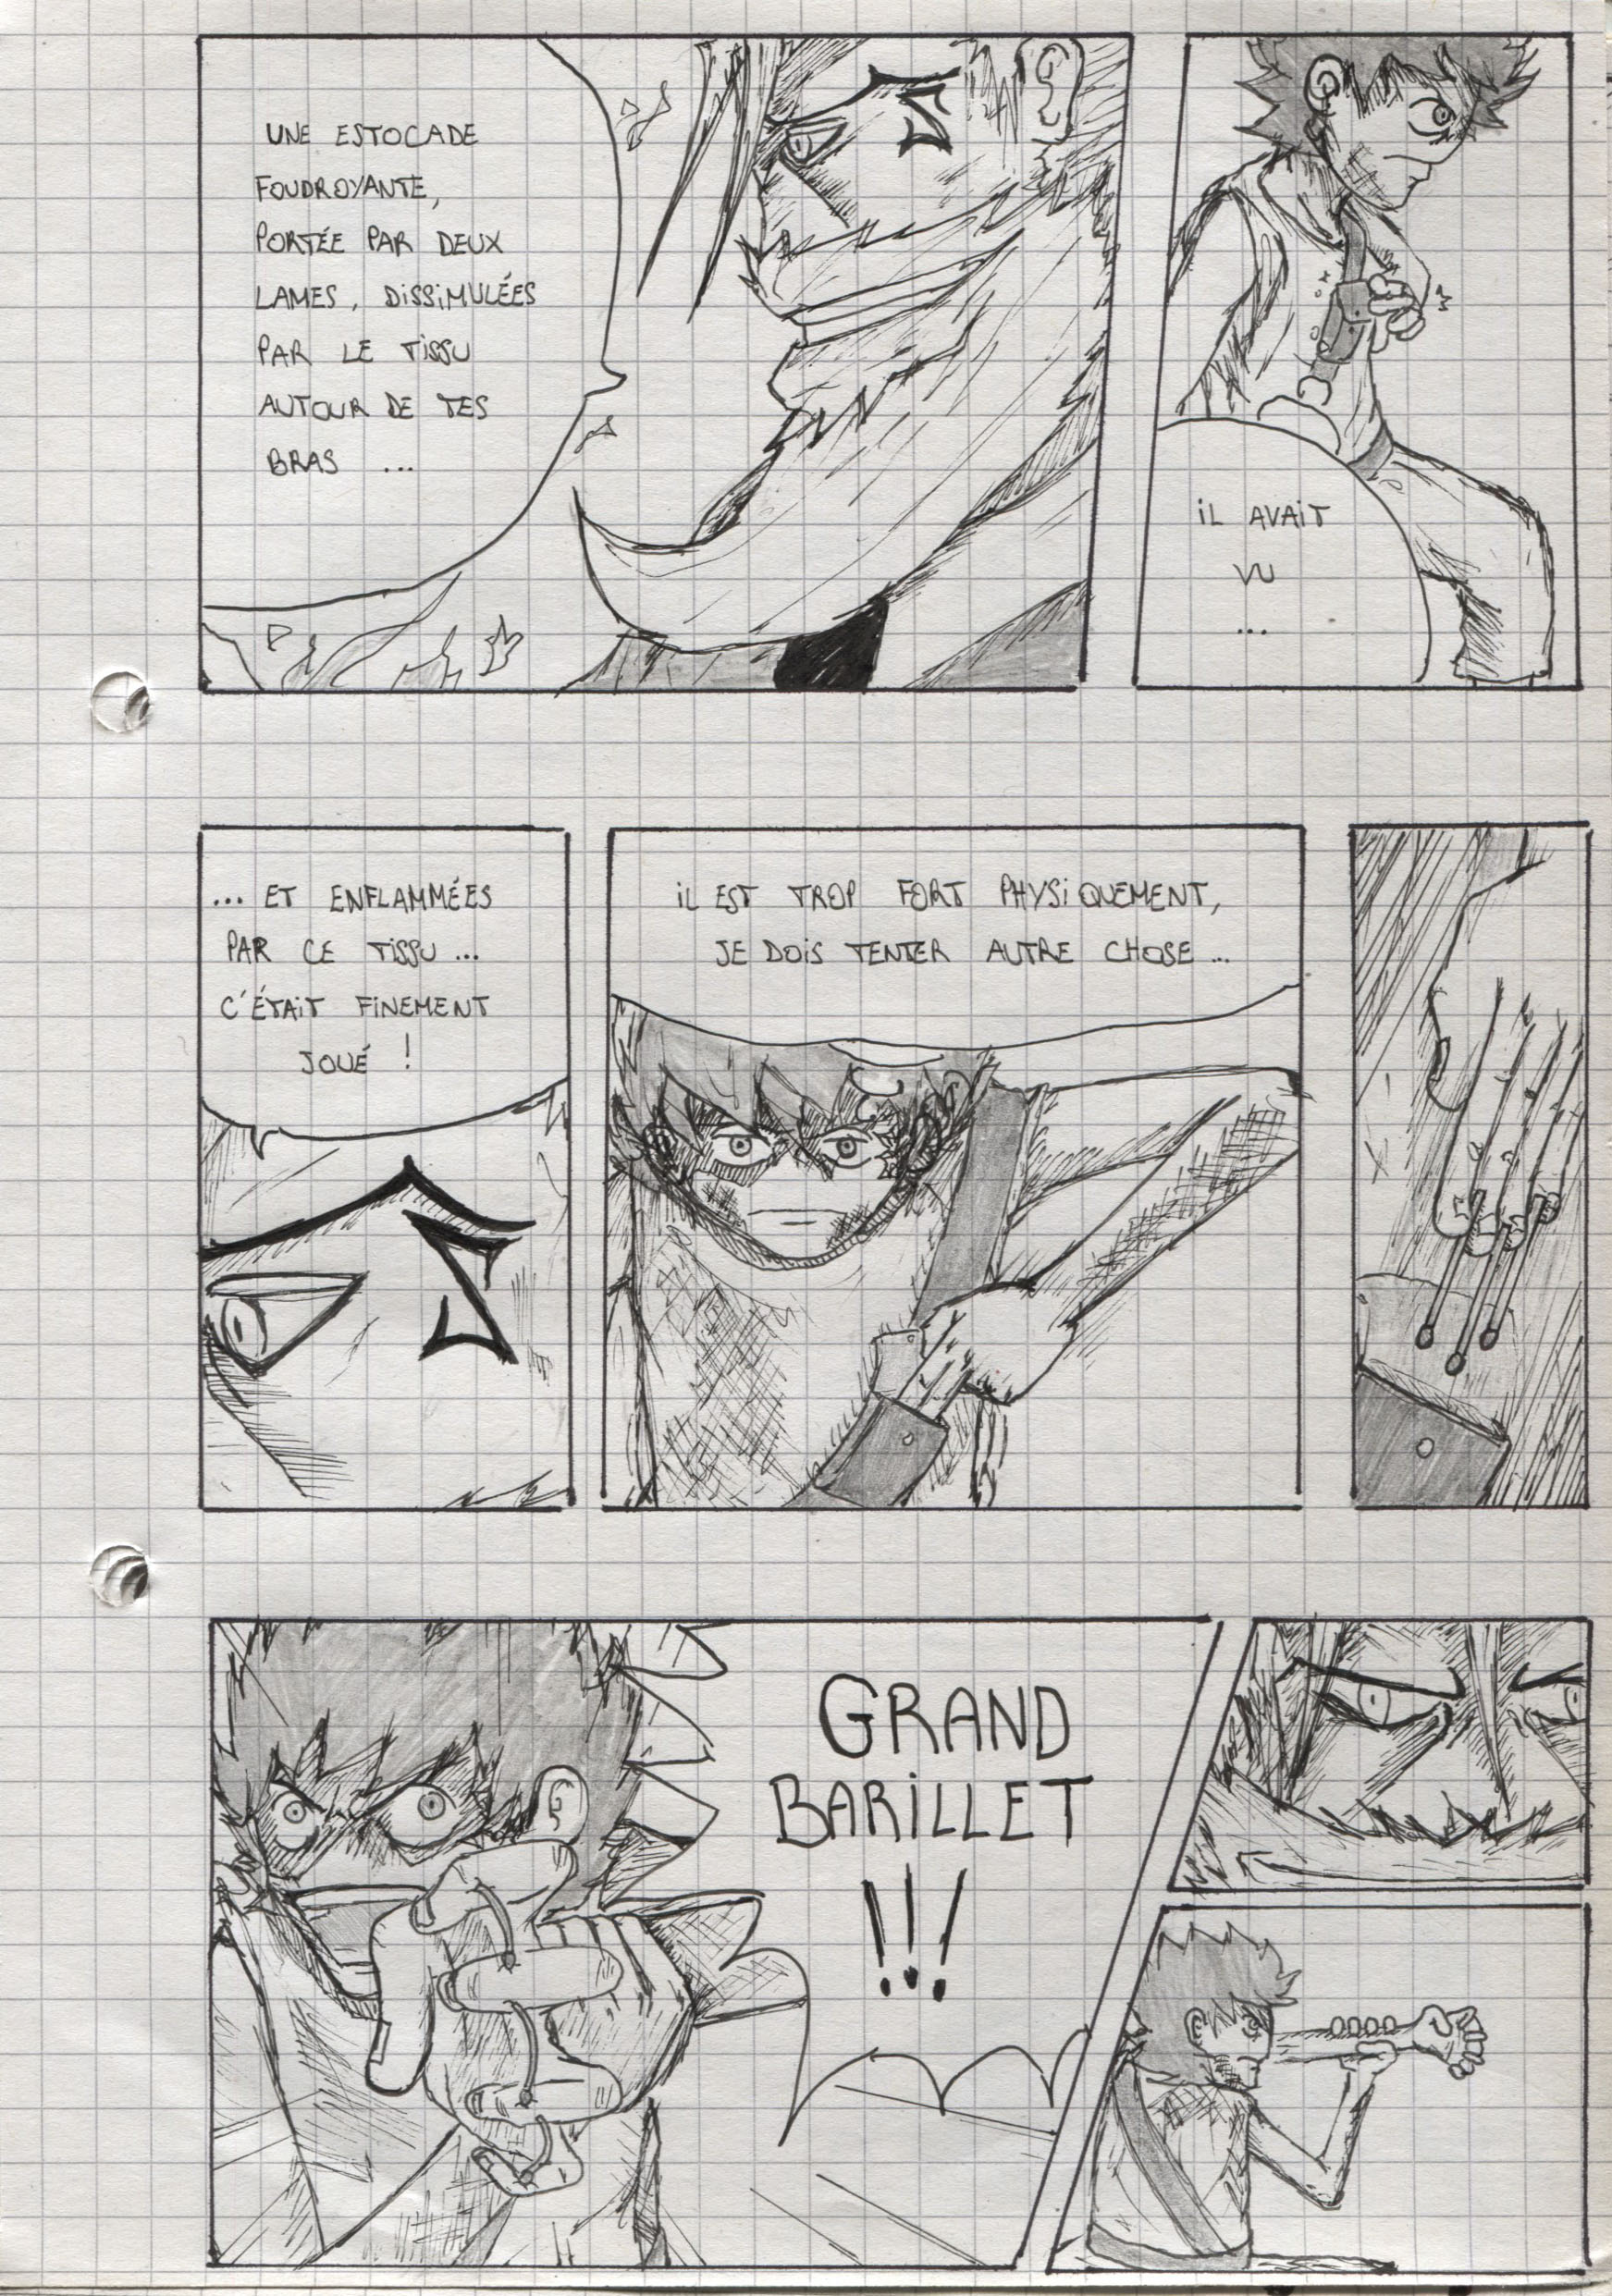 UNE ESTOCADE
FOUDROYANTE,
PORTÉE PAR DEUX
LAMES, DISSIMULÉES
PAR LE TISSU
AUTOUR DE TES
BRAS ...
IL AVAIT
VU
...
... ET ENFLAMMÉES
PAR CE TISSU ...
C'ÉTAIT FINEMENT
JOUÉ !
IL EST TROP FORT PHYSIQUEMENT,
JE DOIS TENTER AUTRE CHOSE ...
GRAND
BARILLET
!!!